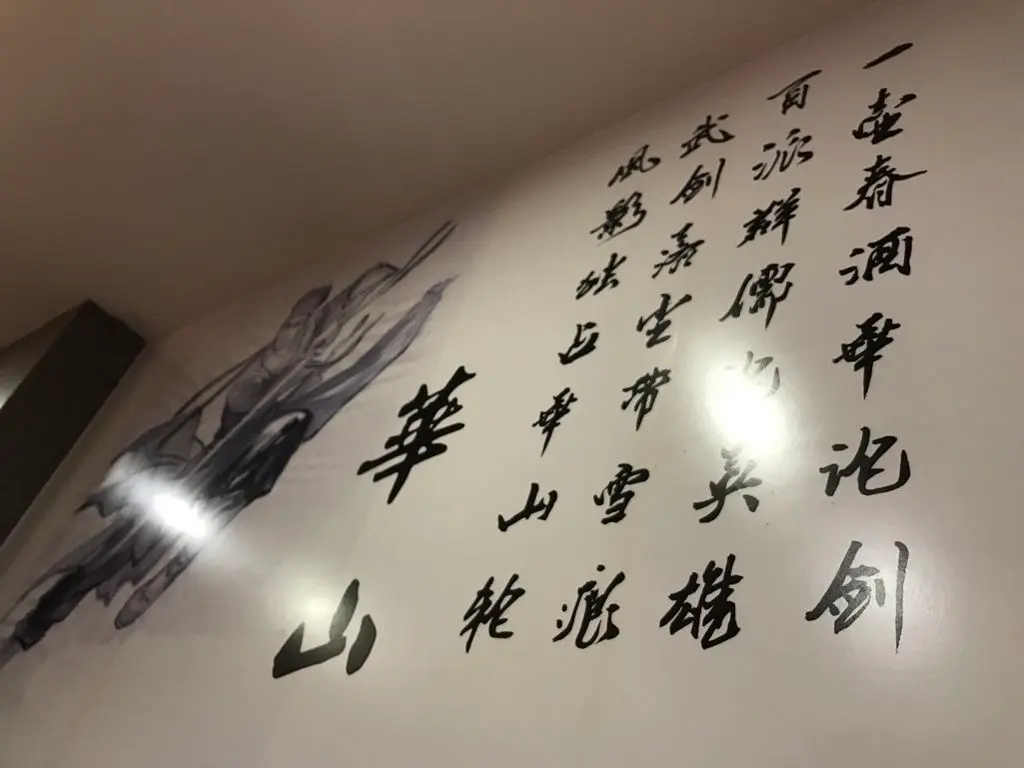 一壶春酒華论剑
百派群儒论英雄
武剑尘带雪痕
风影独占華山轮
華山